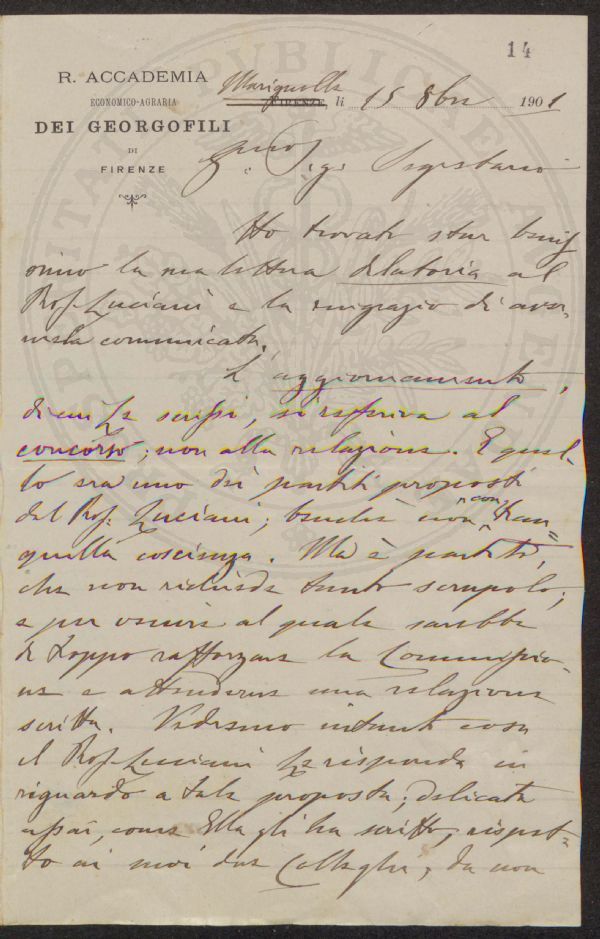 14
R. ACCADEMIA
ECONOMICO-AGRARIA
DEI GEORGOFILI
DI
FIRENZE
Marignolle
FIRENZE, li 15 8bre 1901
Sig. Segretario
Ho trovato star benis
simo la sua lettera dilatoria al
Prof. Luciani e la ringrazio di aver
mela comunicata.
L'aggiornamento,
di cui Le scrissi, si riferiva al
concorso; non alla relazione. E quel
lo era uno dei partiti proposti
dal Prof. Luciani; benchè non con tran=
quilla coscienza. Ma è partito,
che non richiede tanto scrupolo;
e per venire al quale sarebbe
di troppo rafforzare la Commissio-
ne e attenderne una relazione
scritta. Vedremo intanto cosa
il Prof. Luciani Le risponda in
riguardo a tale proposta; delicata
assai, come Ella gli ha scritto, rispet=
to ai suoi due Colleghi, da non